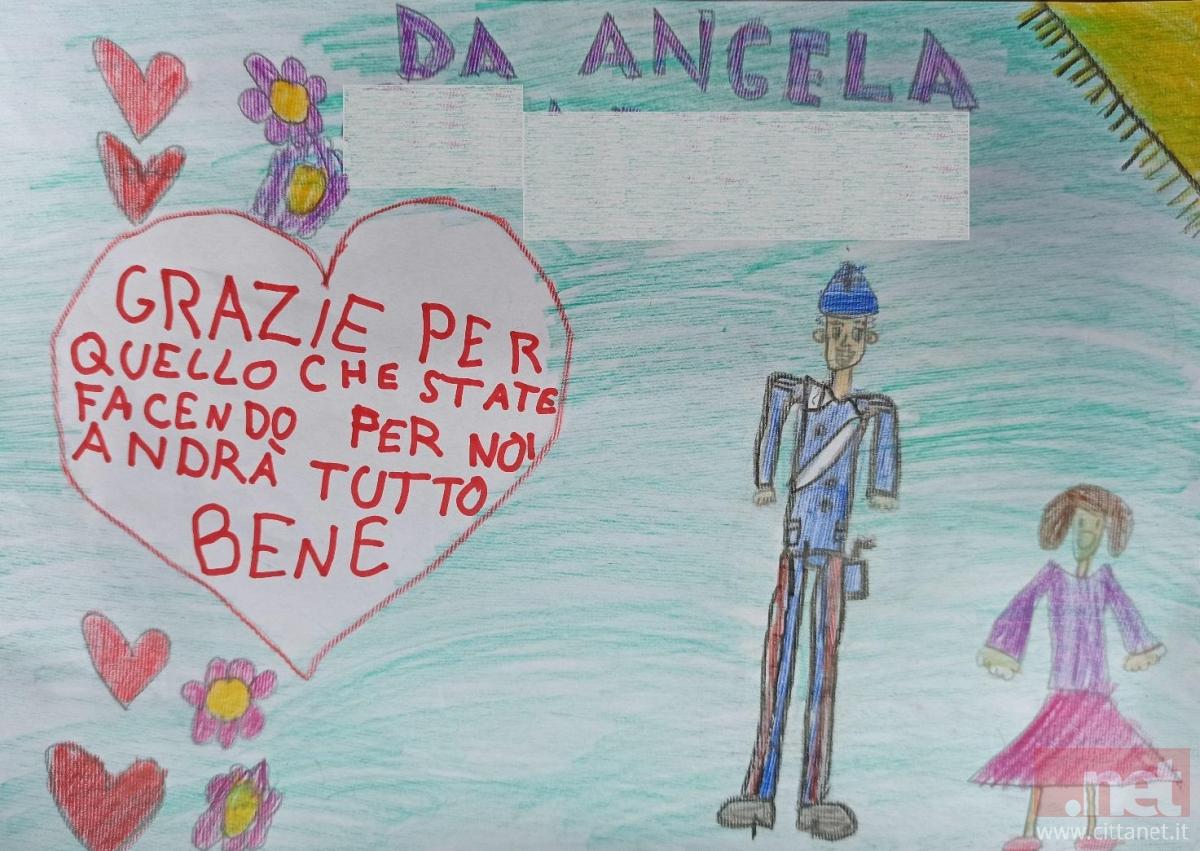 DA ANGELA
GRAZIE PER
QUELLO CHE STATE
FACENDO PER NOI
ANDRÀ TUTTO
BENE
.net
www.cittanet.it